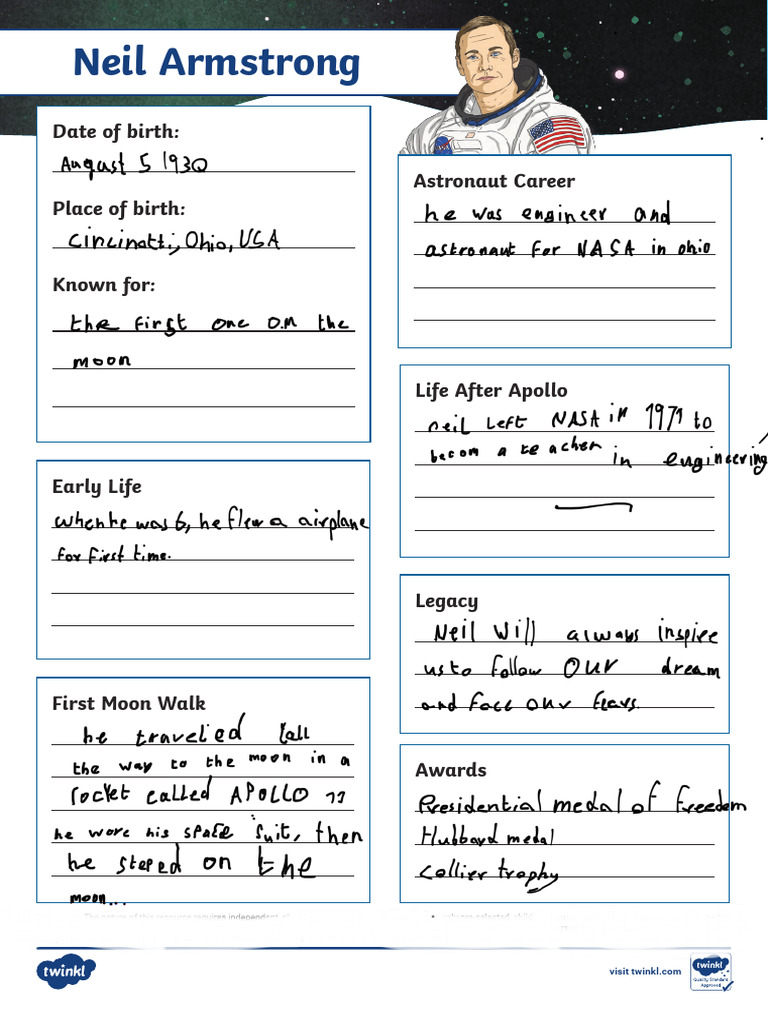 Neil Armstrong
Date of birth:
August 5 1930
Place of birth:
Cincinatti, Ohio, USA
Known for:
the first one on the
moon
Early Life
when he was 6, he flew a airplane
for first time.
First Moon Walk
he traveled all
the way to the moon in a
rocket called APOLLO 11
he wore his space suit, then
he steped on the
moon...
Astronaut Career
he was engineer and
astronaut for NASA in ohio
Life After Apollo
neil left NASA in 1971 to
becom a teacher in engineering
Legacy
Neil Will always inspire
us to follow OUR dream
and face our fears.
Awards
Presidential medal of freedom
Hubbard medal
Collier trophy
twinkl
visit twinkl.com
twinkl
Quality Standard
Approved